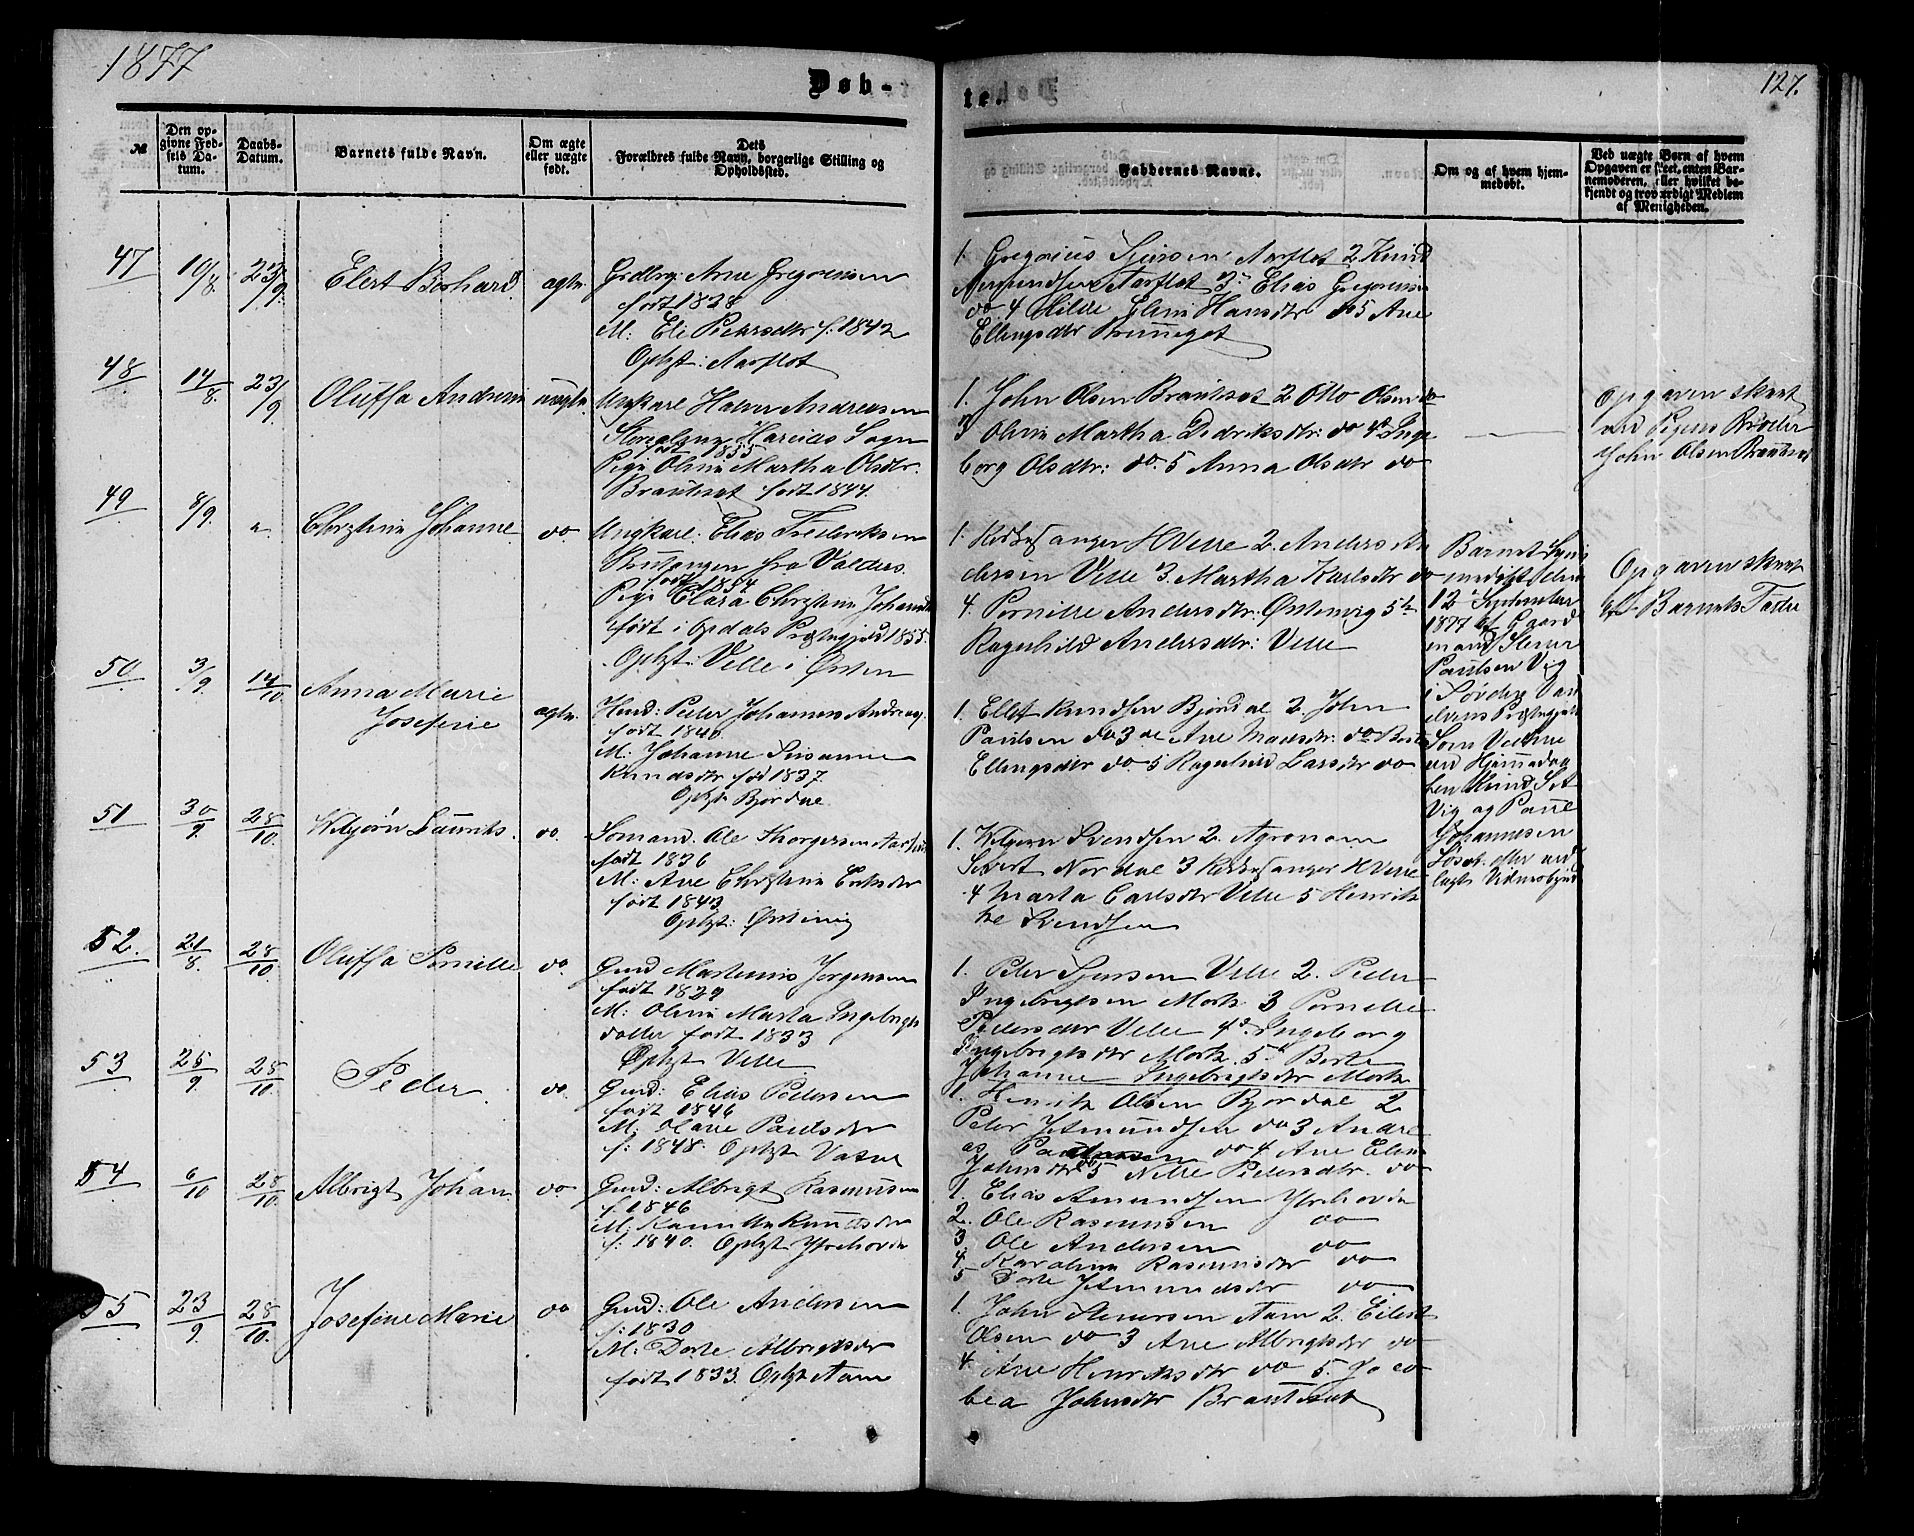 1877
Døb-
te.
127.
№
Den opgivne Fødsels Datum.
Daabs-Datum.
Barnets fulde Navn.
Om ægte eller uægte født.
Dets Forældres fulde Navn, borgerlige Stilling og Opholdssted.
Faddernes Navne.
Om og af hvem hjemmedøbt.
Ved uægte Børn af hvem Opgaven er skeet, enten Barnemoderen, eller hvilket bekjendt og troværdigt Medlem af Menigheden.
47
10/8
23/9
Elert Bernhard
ægte.
Grdbrg: Arne Gregorensen
født 1838
M: Eli Pedersdtr f: 1842
Oplgt: Aarflot
1. Gregorius Sjursen Aarflot 2 Knud
Amundsen Aarflot 3. Elias Gregorensen
do 4 Hilde Eline Hansdtr do 5 Ane
Ellingsdtr
48
14/8
23/9
Oluffa Andrine
uægte.
Ungkarl Halvor Andreasen
Sogn
født 1855
Pige Oline Martha Olsdtr.
Brauteset født 1844.
1. John Olsen Brauteset 2 Otto Olsen do
3 Oline Martha Didriksdtr: do 4de Inge
borg Olsdtr: do. 5 Anna Olsdtr do
Opgaven skeet
ved Pigens Broder
John Olsen Brauteset
49
8/9
"
Christine Johanne
do.
Ungkarl: Elias Frederiksen
fra Valders
født 1854
Pige Clara Christine Johansdtr
født i Opdals Præstegjeld 1855.
Oplgt: Velle i Ørsten
1. Kirkesanger H Velle 2. Anders An
dersen Velle 3. Martha Karlsdtr do
4. Pernille Andersdtr: Østenvig 5te
Ragnhild Andersdtr: Velle
Barnet hjem
medøbt den
12 September
1877 af Gaard
mand Steinar
Paulsen Vig
i Søvdens
Præstegjeld
Som Vidne
ved Hjemmedaa
ben Knud
Vig og Paul
Johannesen
efter ved
lagte Vidnesbyrd
Opgaven skeet
af Barnets Fader
50
3/9
14/10
Anna Marie
Joseferie
ægte.
Husd: Peder Johannes Andreas.
født 1840.
M. Johanne Susanne
Knudsdtr fød 1837.
Oplgt Bjørdal
1. Ellef Knudsen Bjørdal 2. John
Paulsen do 3de Ane Madsdtr: do Berte
Ellingsdtr do. 5 Ragnhild Larsdtr do
51
30/9
28/10
Vebjørn Laurits.
do.
Somand. Ole Thorgersen
født 1836
M: Ane Christine Eriksdtr
født 1843
Oplgt: Østenvig
1. Vebjørn Svendsen 2. Agronom
Sivert Nordal 3 Kirkesanger H Velle
4 Marta Carlsdtr Velle 5 Henrik
ke Svendsen
52.
21/8.
28/10
Oluffa Pernille
do.
Gmd Martinus Jørgensen
født 1829
M: Oline Marta Ingebrigts
datter født 1833
Oplgt Velle
1. Peter Sjursen Velle 2. Peder
Ingebrigtsen Mork 3 Pernille
Pedersdtr Velle 4de Ingeborg
Ingebrigtsdtr Mork. 5te Berte
Johanne Ingebrigtsdtr Mork
53
25/9.
28/10.
Peder.
do.
Gmd: Elias Pedersen
født 1846
M: Marie Paulsdtr
f: 1848. Oplgt Vatne
1. Henrik Olsen Bjørdal 2
Peder Jetmundsen do 3 Andre
as Paulsen do 4 Ane Elen
Johnsdtr do 5 Nille Pedersdtr. do
54
6/10
28/10.
Albrigt Johan.
do
Gmd: Albrigt Rasmussen
f. 1846
M: Knudsdtr
f: 1840. Oplgt Ytrehovde
1. Elias Amundsen Ytrehovde
2. Ole Rasmussen do
3. Ole Andersen do
4. Karoline Rasmusdtr do
5 Dorte Jetmundsdtr do
55
23/9
28/10.
Josefine Marie
do
Gmd: Ole Andersen
f: 1830
M: Dorte Albrigtsdtr
født 1833. Oplgt Aam
1. John Steinersen Aam 2. Eilert
Olsen do 3 Ane Albrigtsdtr do
4. Ane Henriksdtr do 5. Jaco
bea Johnsdtr Brauteset